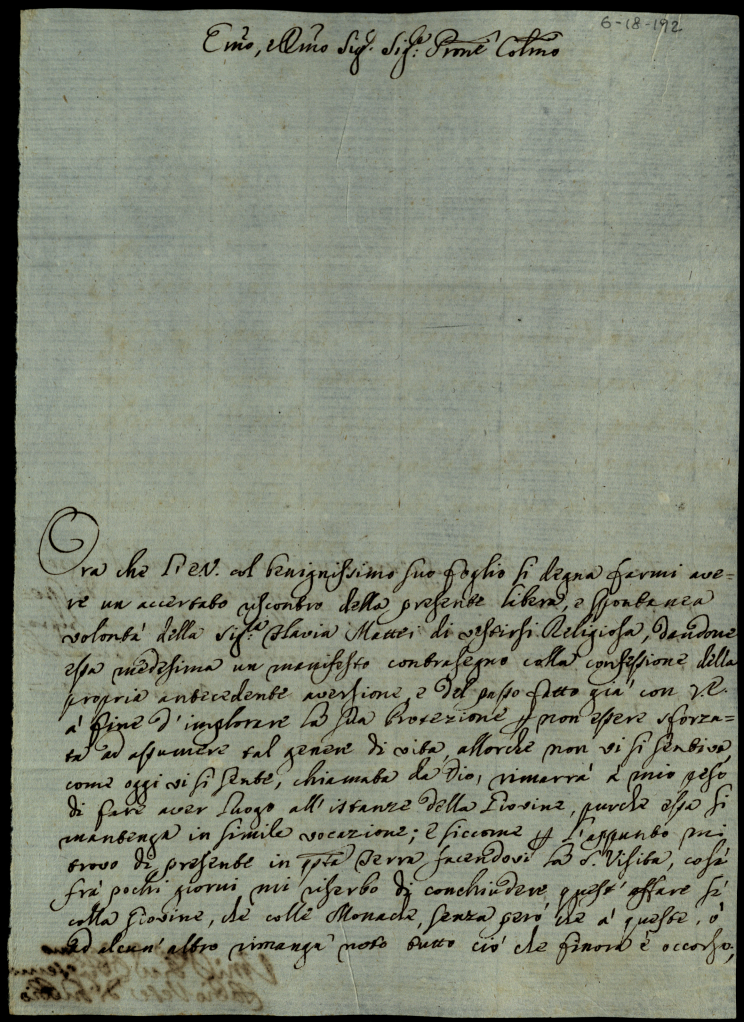 6-18-192
Emo, e Rmo Sigr. Sigr: Prone Colmo
Ora che l'E.V. col benignissimo suo foglio si degna farmi ave=
re un accertato riscontro della presente libera, e spontanea
volontà della Sigra Flavia Mattei di vestirsi Religiosa, dandone
essa medesima un manifesto contrasegno colla confessione della
propria antecedente aversione, e del passo fatto già con V.E.
à fine d'implorare la sua Protezione p non essere sforza=
ta ad assumere tal genere di vita, allorche non vi si sentiva,
come oggi vi si sente, chiamata da Dio, rimarrà à mio peso
di fare aver luogo all'istanze della Giovine, purche essa si
mantenga in simile vocazione; e siccome p l'appunto mi
trovo di presente in pta Terra facendovi la S. Visita, così
frà pochi giorni mi riserbo di conchiudere quest'affare sì
colla Giovine, che colle Monache, senza però che à queste, ò
ad alcun'altro rimanga noto tutto ciò che finora è occorso,